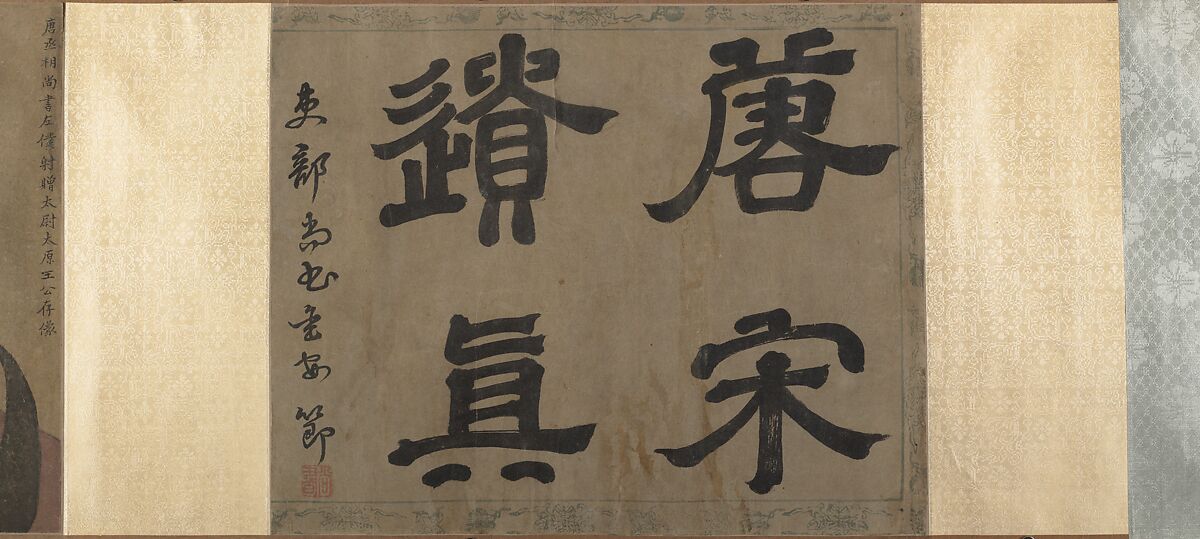 唐宋
遺眞
吏部尚書金安節
唐丞相尚書左僕射贈太尉太原王公存像